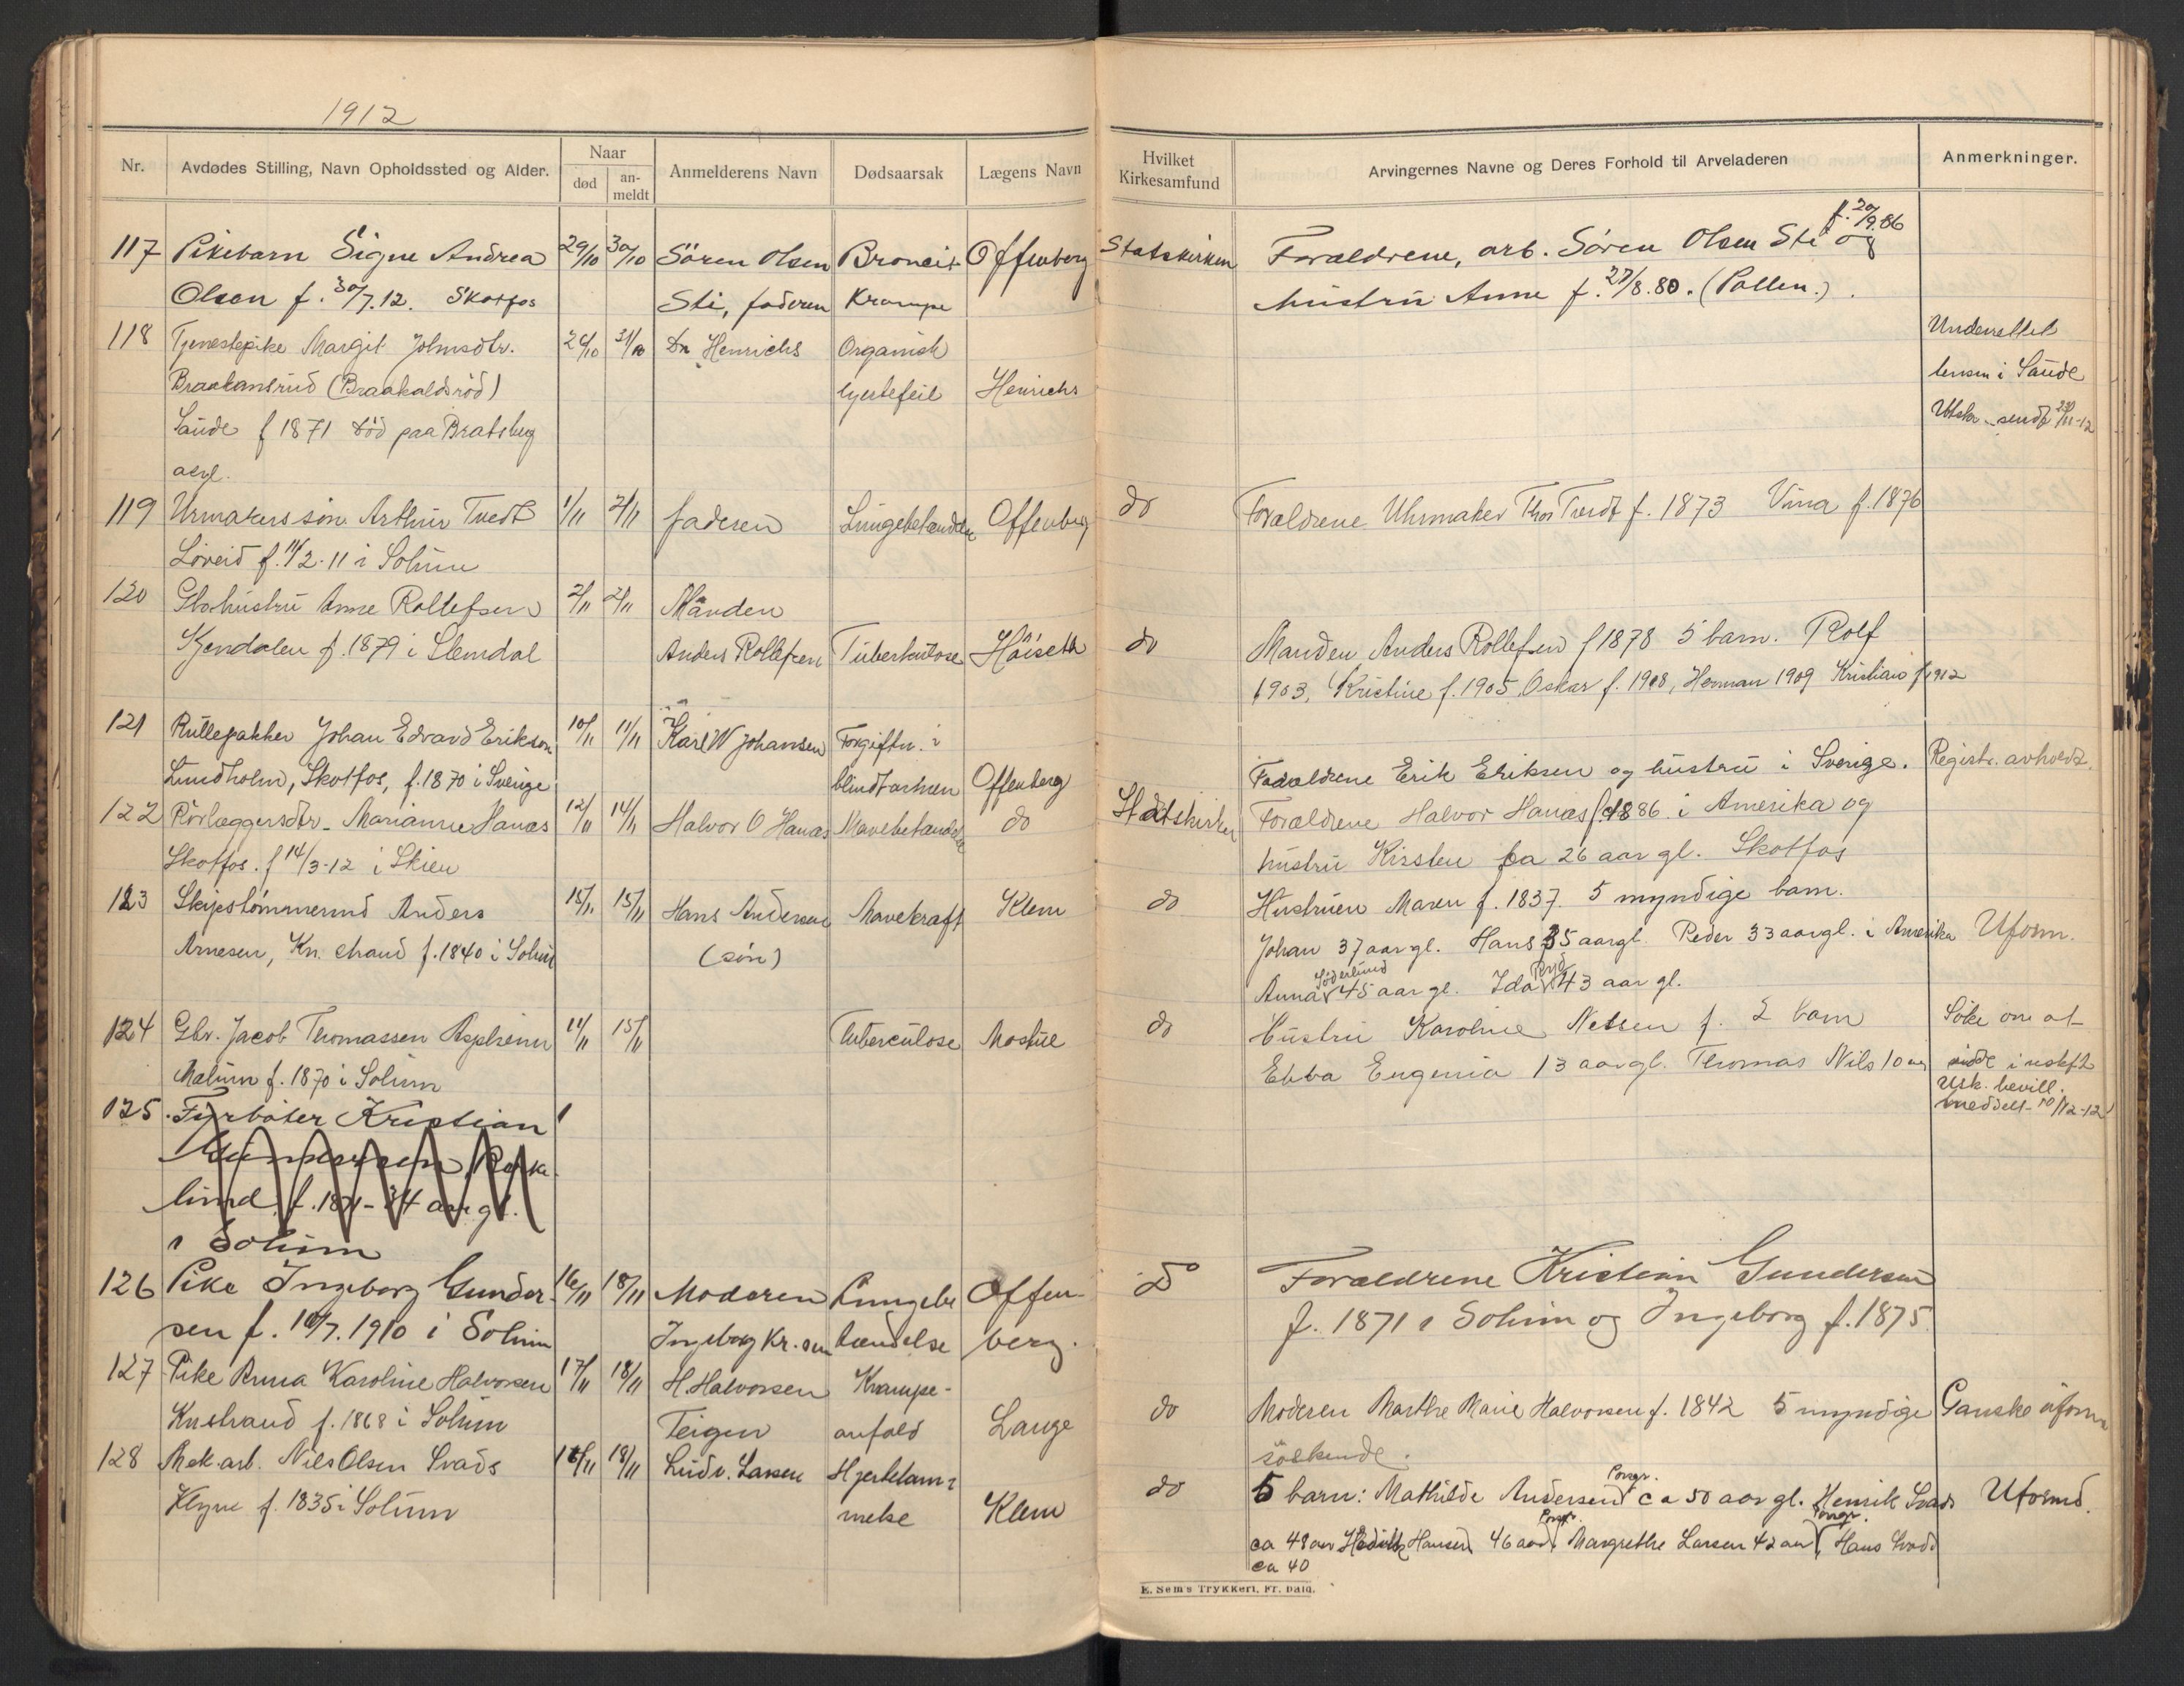 1912
Nr. Avdødes Stilling, Navn Opholdssted og Alder. Naar død an-meldt Anmelderens Navn Dødsaarsak Lægens Navn Hvilket Kirkesamfund Arvingernes Navne og Deres Forhold til Arveladeren Anmerkninger.
117 Pikebarn Signe Andrea 29/10 30/10 Søren Olsen Broncit Offenberg Statskirken Forældrene, arb. Søren Olsen Sti f. 20/9.86 og
Olsen f. 30/7.12. Skotfos Sti, faderen Krampe hustru Anne f. 27/8.80. (Pollen.).
118 Tjenestepike Margit Johnsdtr. 29/10 31/10 Dr Henrichs Organisk Underettet
Braakansrud (Braakaldsrød) hjertefeil Henrichs lensm i Saude
Saude f 1871 død paa Bratsberg sendt 23/11-12
119 Urmakers søn Arthur Tvedt 1/11 2/11 faderen Lungebetændelse Offenberg do Forældrene Uhrmaker Thor Tvedt f. 1873 Vina f. 1876
Løveid f. 11/2-11 i Solum
120 Gbr hustru Anne Rollefsen 2/11 2/11 Manden
Kjendalen f. 1879 i Slemdal Anders Rollefsen Tuberkulose Høiseth do Manden Anders Rollefsen f 1878 5 barn. Rolf
1903, Kristine f. 1905, Oskar f. 1908, Herman 1909 Kristian f 1912
121 Rullepakker Johan Edvard Erikson 10/11 11/11 Karl W Johansen Forgiftn. i
Lundholm, Skotfos, f. 1870 i Sverige blindtarmen Offenberg Forældrene Erik Eriksen og hustru i Sverige. Registr. avholdt.
122 Rørlæggersdtr. Marianne Hanås 12/11 14/11 Halvor O Hanås Mavebetændelse do Statskirken Forældrene Halvor Hanås f. 1886 i Amerika og
Skotfos. f 14/3-12 i Skien hustru Kirsten ca 26 aar gl. Skotfos
123 Skipstømmermd Anders 15/11 15/11 Hans Andersen Mavekræft Klem do Hustruen Maren f. 1837. 5 myndige barn.
Arnesen, Kn. strand f. 1840 i Solum (søn) Johan 37 aar gl. Hans 35 aar gl. Peder 33 aar gl. i Amerika Uform.
Anna Söderlund 45 aar gl. Ida 43 aar gl.
124 Gbr. Jacob Thomassen Aspheim 11/11 15/11 Tuberculose Mostue do Hustru Karoline Nelsen f. 2 barn Søke om at
Mælum f. 1870 i Solum Ebba Eugenia 13 aar gl. Thomas Nils 10 aar sidde i uskift
Usk. bevill.
meddelt 10/12-12
125. Fyrbøter Kristian
Gundersen
lund f. 1871 - 34 aar gl.
i Solum
126 Pike Ingeborg Gunder- 16/11 18/11 Moderen Lungebe Offen- do Forældrene Kristian Gundersen
sen f. 10/7.1910 i Solum Ingeborg Kr. sen tændelse berg. f. 1871 i Solum og Ingeborg f. 1875.
127 Pike Anna Karoline Halvorsen 17/11 18/11 H. Halvorsen Krampe-
Knstrand f. 1868 i Solum Teigen anfald Lange do Moderen Marthe Marie Halvorsen f. 1842 5 myndige Ganske uform
søskende.
128 Mek. arb. Nils Olsen Svads 16/11 18/11 Ludv. Larsen Hjertelam- do 5 barn: Mathilde Andersen Porsgr. ca 50 aar gl. Henrik Svads Uformd.
Klyve f. 1835 i Solum melse Klem ca 48 aar Hansen Porsgr. 46 aar, Margrethe Larsen 42 aar Porsgr., Hans Svads
ca 40
E. Sem's Trykkeri, Fr. hald.